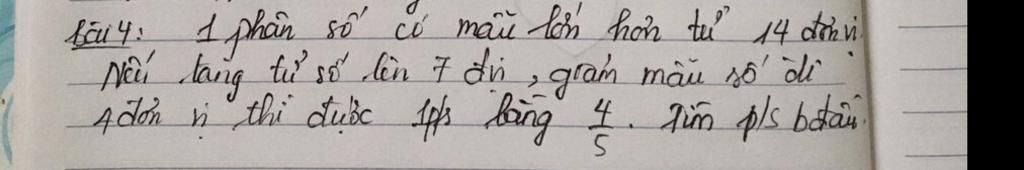 Bài 4: 1 phân số có mẫu lớn hơn tử 14 đơn vị.
Nếu tăng tử số lên 7 đvị, giảm mẫu số đi
4 đơn vị thì được 1p/s bằng 4/5. Tìm p/s bđầu.